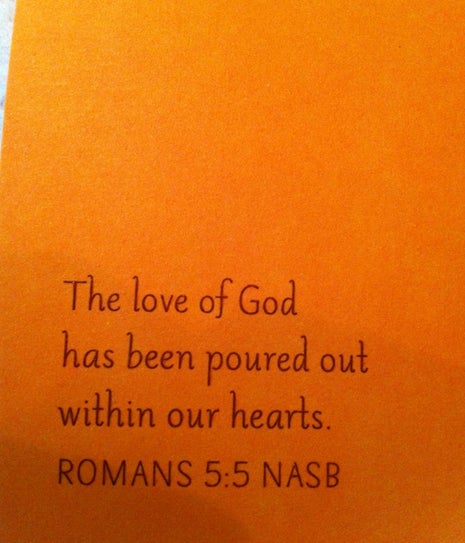 The love of God
has been poured out
within our hearts.
ROMANS 5:5 NASB